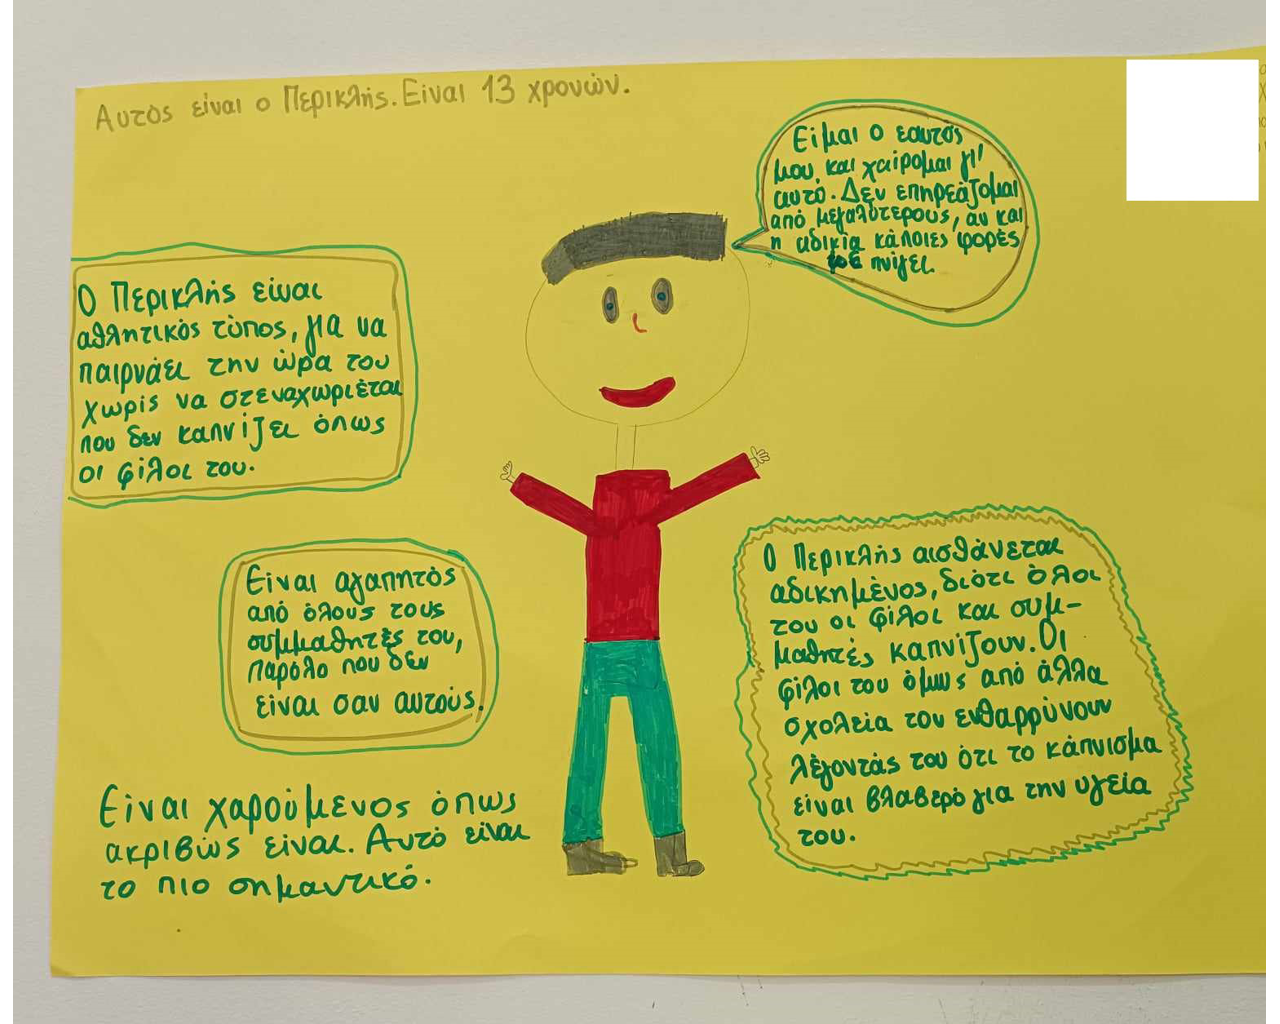 Αυτός είναι ο Περικλής. Είναι 13 χρονών.
Είμαι ο εαυτός
μου, και χαίρομαι γι'
αυτό. Δεν επηρεάζομαι
από μεγαλύτερους, αν και
η αδικία κάποιες φορές
με πνίγει.
Ο Περικλής είναι
αθλητικός τύπος, για να
παιρνάει την ώρα του
χωρίς να στεναχωριέται
που δεν καπνίζει όπως
οι φίλοι του.
Είναι αγαπητός
από όλους τους
συμμαθητές του,
παρόλο που δεν
είναι σαν αυτούς.
Ο Περικλής αισθάνεται
αδικημένος, διότι όλοι
του οι φίλοι και συμ-
μαθητές καπνίζουν. Οι
φίλοι του όμως από άλλα
σχολεία τον ενθαρρύνουν
λέγοντάς του ότι το κάπνισμα
είναι βλαβερό για την υγεία
του.
Είναι χαρούμενος όπως
ακριβώς είναι. Αυτό είναι
το πιο σημαντικό.